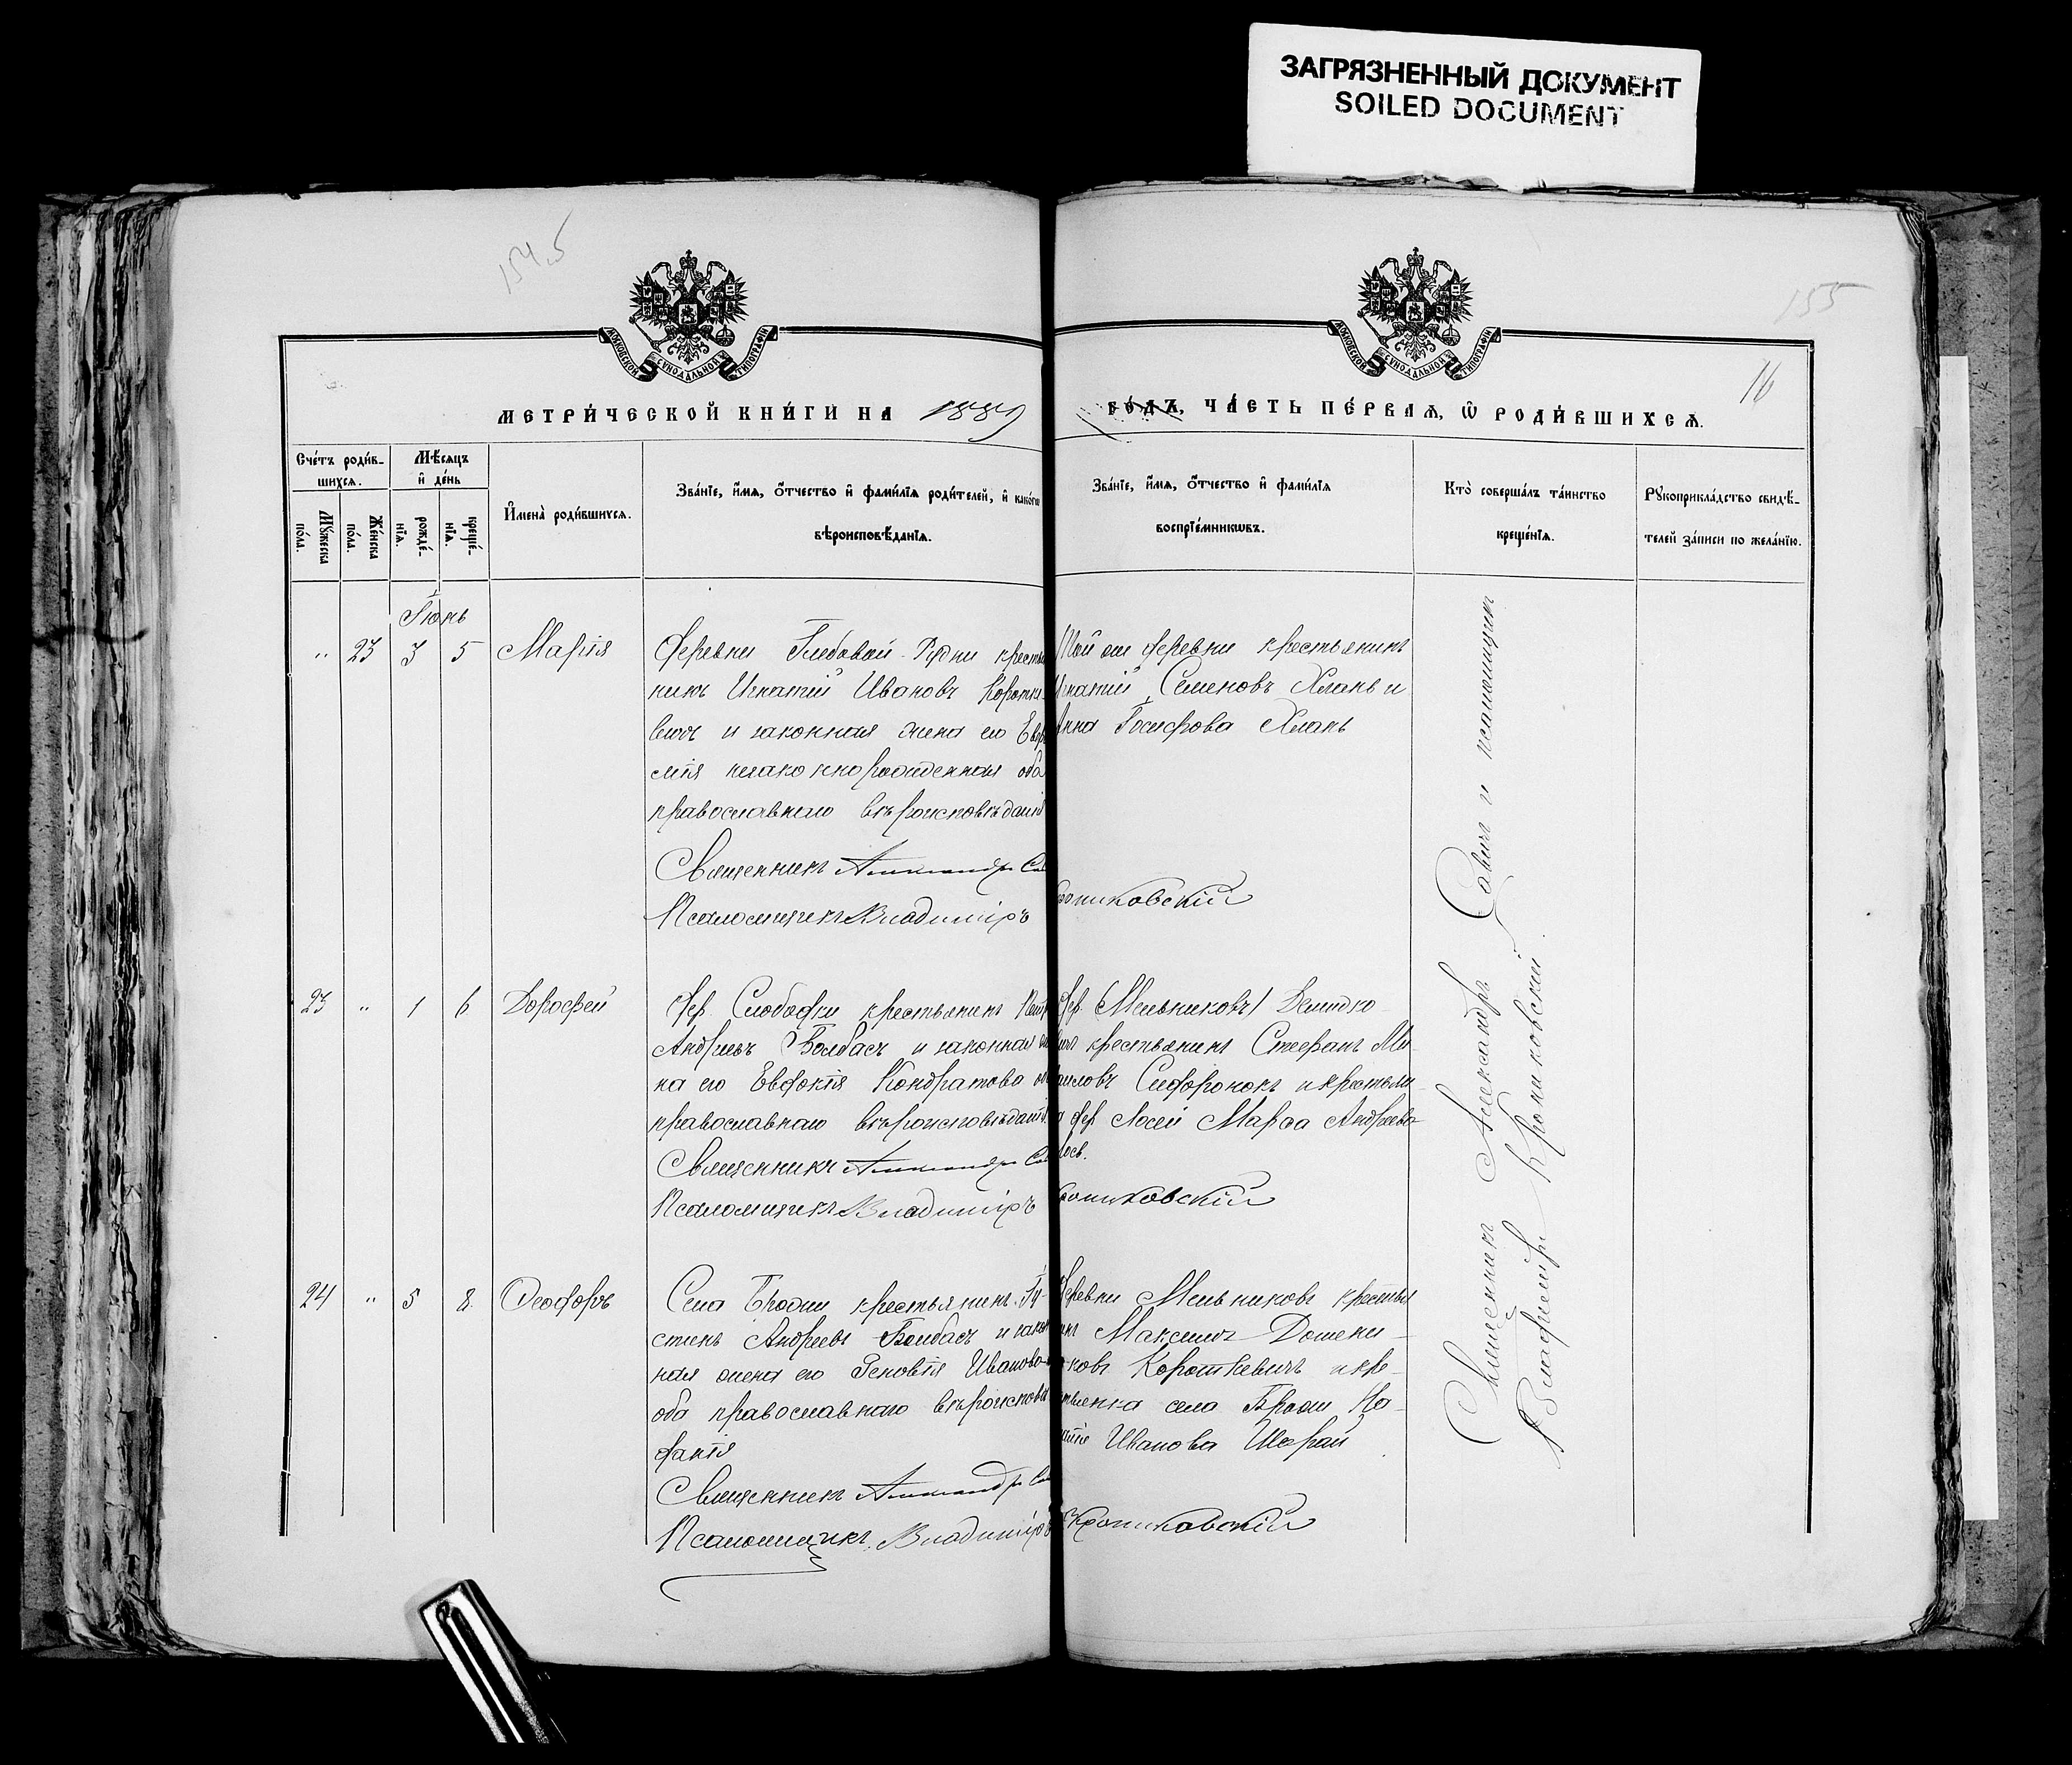 ЗАГРЯЗНЕННЫЙ ДОКУМЕНТ
SOILED DOCUMENT
154,5
155
16
МОСКОВСКОЙ СѴНОДАЛЬНОЙ ТИПОГРАФІИ
МОСКОВСКОЙ СѴНОДАЛЬНОЙ ТИПОГРАФІИ
МЕТРИ́ЧЕСКОЙ КНИ́ГИ НА 1889
ГО́ДЪ, ЧА́СТЬ ПЕ́РВАѦ, Ѡ РОДИ́ВШИХСѦ.
Сче́тъ роди́в-
шихсѧ.
Мѣ́сѧцъ
и де́нь
Мꙋ́жеска
по́ла.
Же́нска
по́ла.
рожде́-
нїѧ.
креще́-
нїѧ.
И҆мена̀ роди́вшихсѧ.
Зва́нїе, и҆́мѧ, о҆́тчество и҆ фами́лїѧ роди́телей, и҆ како́гѡ
вѣроисповѣ́данїѧ.
Зва́нїе, и҆́мѧ, о҆́тчество и҆ фами́лїѧ
воспрїе́мникѡвъ.
Кто̀ соверша́лъ та́инство
креще́нїѧ.
Рꙋкоприкла́дство свидѣ́-
телей за́писи по жела́нїю.
Іюнь
" 23 3 5 Марія
Деревни Глебовой Рудни кресть
нинъ Игнатій Ивановъ Коротке-
вичъ и законная жена его Евфи
мія незаконнорожденная оба
православнаго вѣроисповѣданія
Священникъ Александръ Са
Псаломщикъ Владиміръ
Той же деревни крестьянинъ
Игнатій Семеновъ Хлань и
Анна Іосифова Хлань
Крониковскій
23 " 1 6 Дорофей
Дер. Слободки крестьянинъ Петр
Андреевъ Болбасъ и законная же
на его Евдокія Кондратова об
православнаго вѣроисповѣданія
Священникъ Александръ Са
Псаломщикъ Владиміръ
Дер. Мельниковъ
крестьянинъ Стефанъ Ми-
аиловъ Сидоронокъ и крестьян
дер Лосей Марфа Андреева
Лось.
Крониковскій
24 " 5 8. Ѳеодоръ
Села Бродни крестьянинъ Іу-
стинъ Андреевъ Болбасъ и закон
ная жена его Зеновія Иванова
оба православнаго вѣроиспов
данія
Священникъ Александръ Са
Псаломщикъ Владиміръ
Деревни Мельниковъ крестья
инъ Максимъ
Короткевичъ и кре-
стьянка села
Иванова Шафай
Крониковскій
Священникъ Александръ Савичъ и псаломщикъ
Владиміръ Крониковскій.